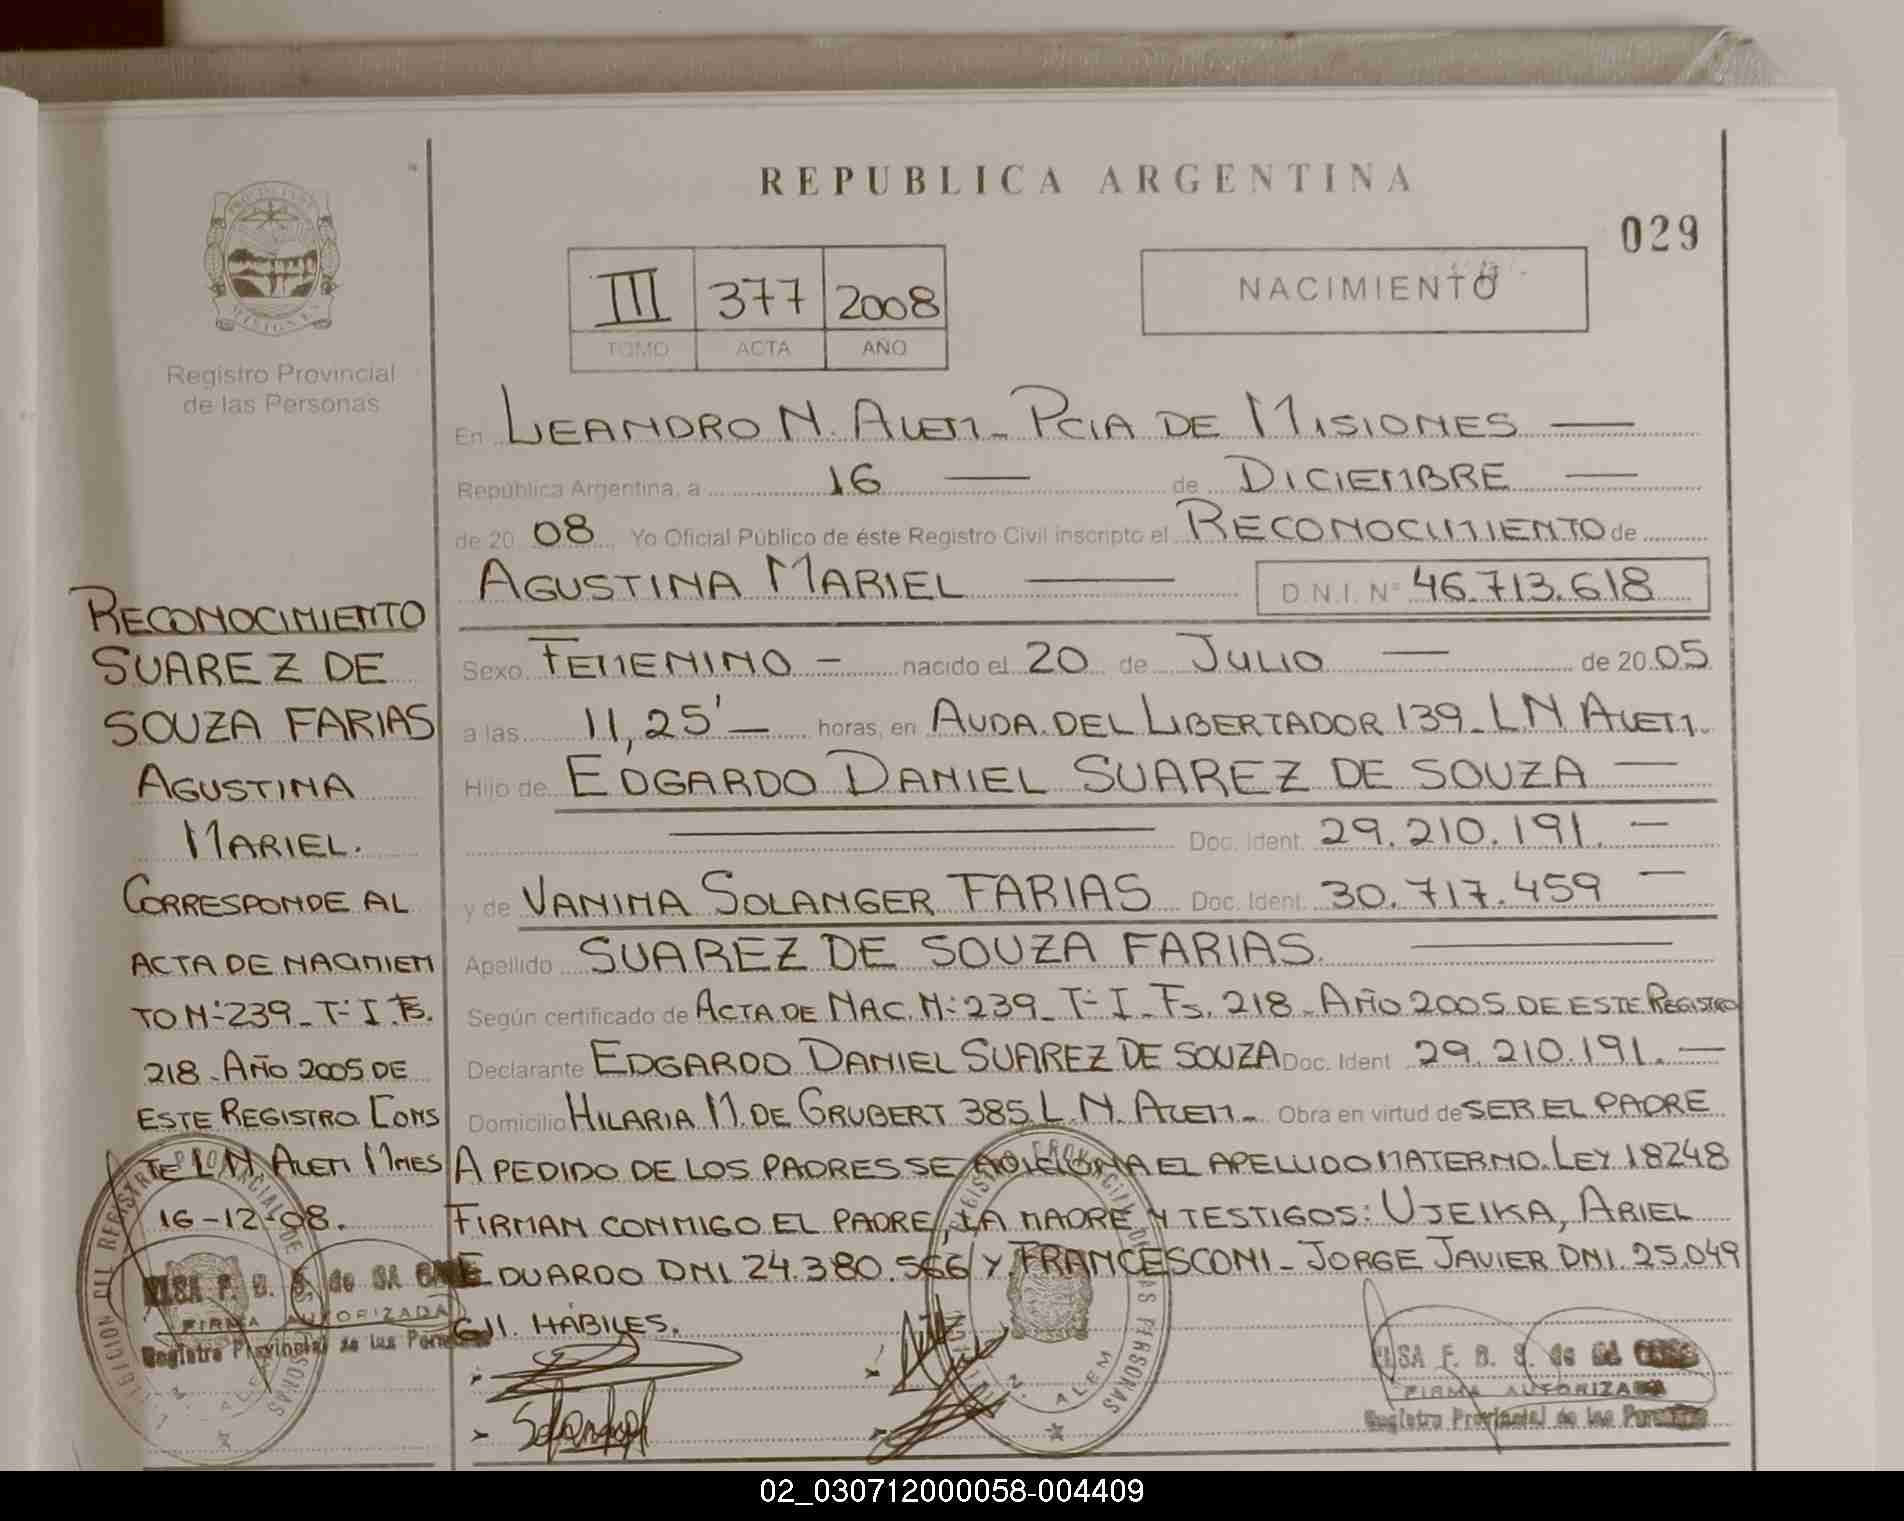 REPUBLICA ARGENTINA
029
III 377 2008
TOMO ACTA AÑO
NACIMIENTO
Registro Provincial
de las Personas
RECONOCIMIENTO
SUAREZ DE
SOUZA FARIAS
AGUSTINA
MARIEL.
CORRESPONDE AL
ACTA DE NACIMIEN
TO Nº 239_ Tº I. Fs.
218_ AÑO 2005 DE
ESTE REGISTRO. CONS
TE L.N. ALEM MNES
16-12-08.
En LEANDRO N. ALEM_ PCIA DE MISIONES
República Argentina, a 16 de DICIEMBRE
de 20 08 Yo Oficial Público de éste Registro Civil inscripto el RECONOCIMIENTO de
AGUSTINA MARIEL D.N.I. Nº 46.713.618
Sexo FEMENINO - nacido el 20 de JULIO de 20 05
a las 11,25' horas, en AVDA. DEL LIBERTADOR 139_ L N ALEM.
Hijo de EDGARDO DANIEL SUAREZ DE SOUZA
Doc. Ident. 29.210.191.
y de VANINA SOLANGER FARIAS Doc. Ident. 30.717.459
Apellido SUAREZ DE SOUZA FARIAS.
Según certificado de ACTA DE NAC. Nº 239_ Tº I_ Fs. 218_ AÑO 2005 DE ESTE REGISTRO
Declarante EDGARDO DANIEL SUAREZ DE SOUZA Doc. Ident 29.210.191.
Domicilio HILARIA M. DE GRUBERT 385 L. N. ALEM_ Obra en virtud de SER EL PADRE
A PEDIDO DE LOS PADRES SE ADICIONA EL APELLIDO MATERNO. LEY 18248
FIRMAN CONMIGO EL PADRE, LA MADRE Y TESTIGOS: UJEIKA, ARIEL
EDUARDO DNI 24.380.566 Y FRANCESCONI_ JORGE JAVIER DNI. 25.049
611. HÁBILES.
ELSA F. B. S. de
FIRMA AUTORIZADA
Registro Provincial de las Personas
ELSA F. B. S. de
FIRMA AUTORIZADA
Registro Provincial de las Personas
02_030712000058-004409